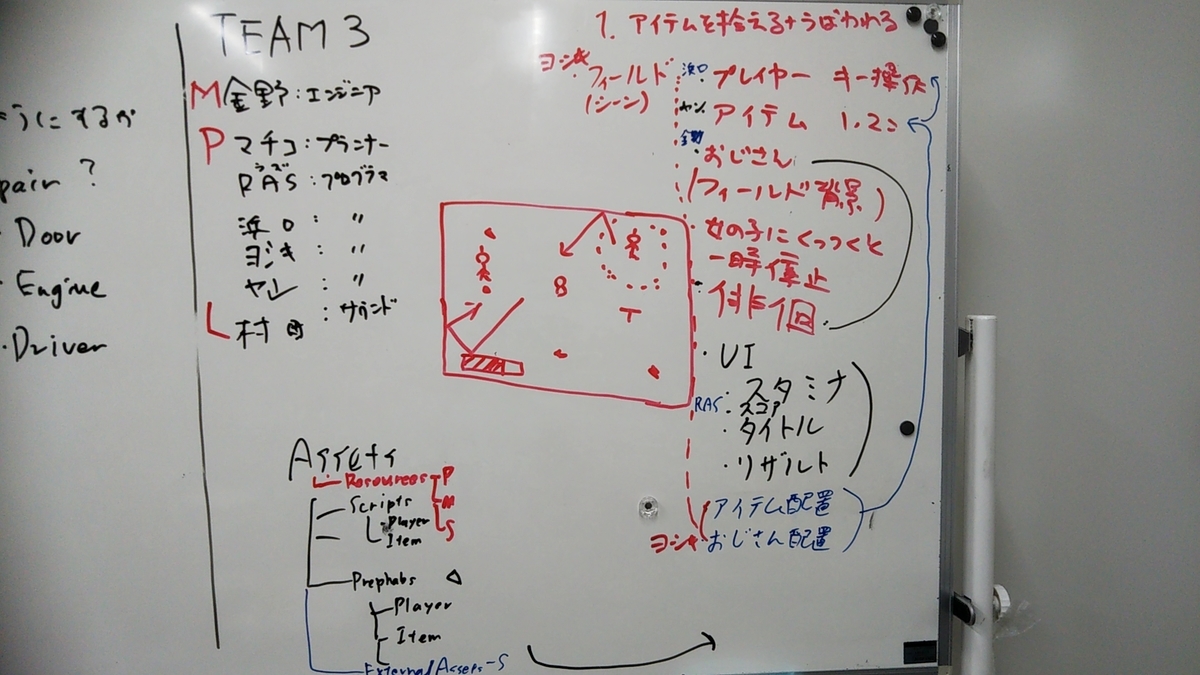 うにするか
pair ?
Door
Engine
・Driver
TEAM 3
M 金野:エンジニア
P マチコ:プランナー
ラズ
RAS:プログラマ
浜口: 〃
ヨシキ: 〃
ヤン: 〃
L 村田:サウンド
Assets
Resources P
M
S
Scripts
Player
Item
Prephabs
Player
Item
External Assets-S
8
T
1. アイテムを拾える+うばわれる
ヨシキ ・フィールド
(シーン)
浜口 ・プレイヤー キー操作
ヤン ・アイテム 1,2コ
金野 ・おじさん
(フィールド背景)
・女の子にくっつくと
一時停止
・徘徊
・UI
・スタミナ
RAS ・スコア
・タイトル
・リザルト
アイテム配置
ヨシキ おじさん配置